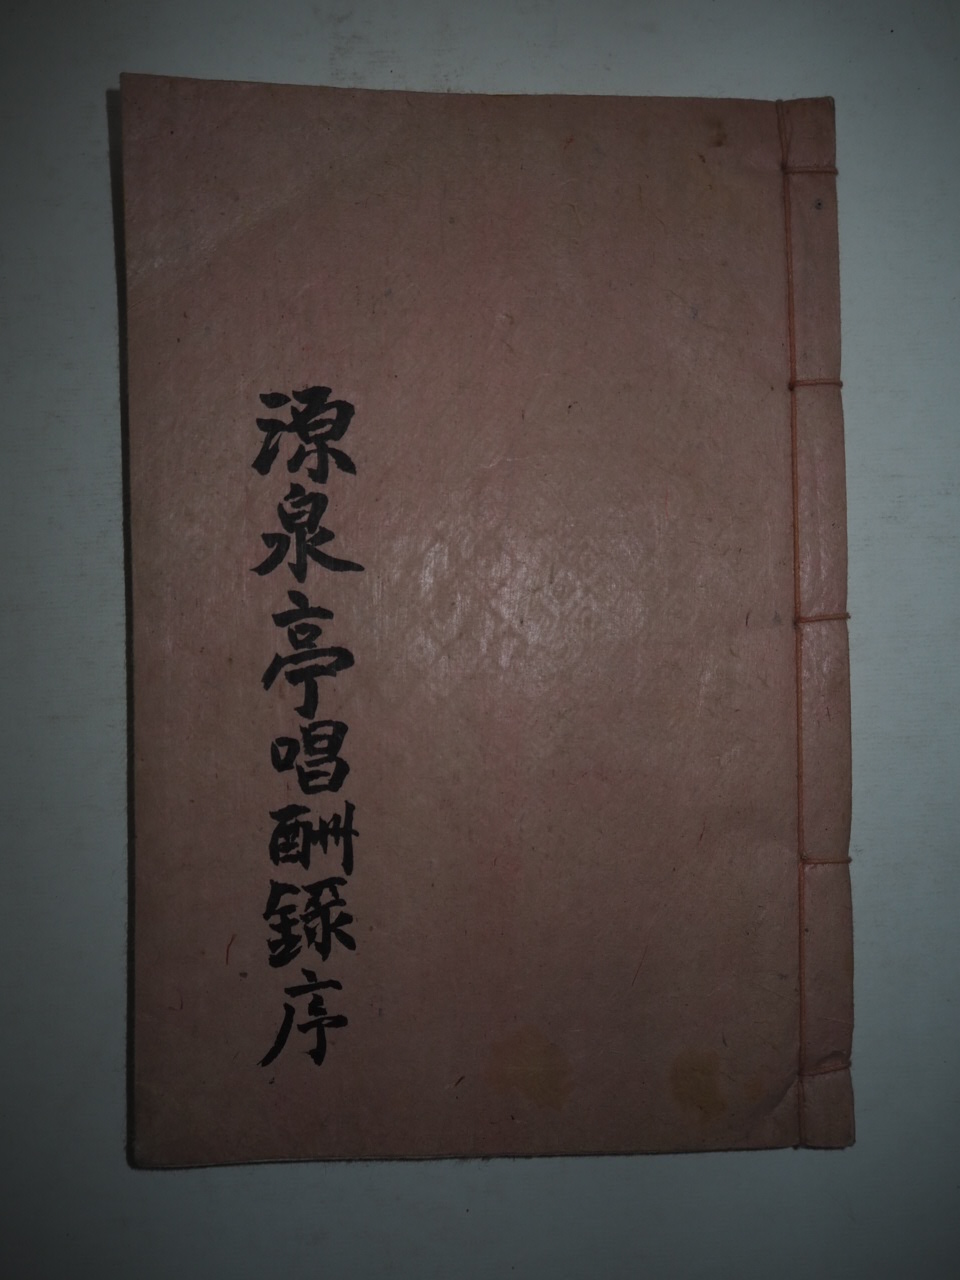 源泉亭唱酬錄序